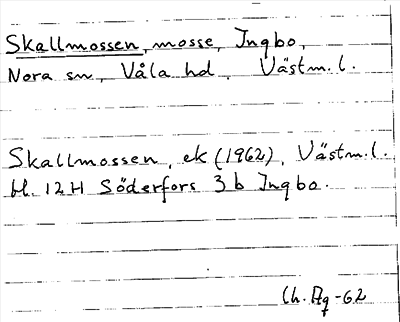 Skallmossen, mosse, Ingbo,
Nora sn, Våla hd, Västm. l.
Skallmossen, ek (1962), Västm. l.
bl. 12H Söderfors 3 b Ingbo.
-62